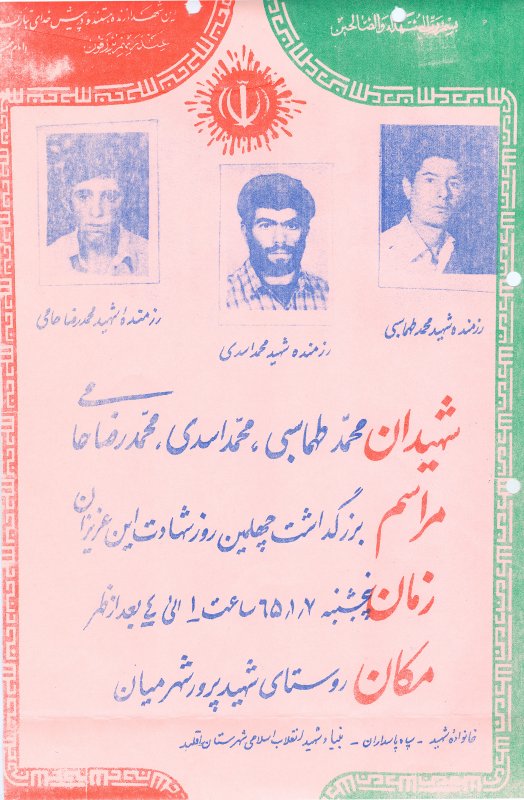 رزمنده شهید محمد طهماسبی
رزمنده شهید محمد اسدی
رزمنده شهید محمدرضا حامی
شهیدان محمّد طهماسبی، محمّد اسدی، محمّد رضا حامی
مراسم بزرگداشت چهلمین روز شهادت این عزیزان
زمان پنجشنبه ۶۵٫۱٫۷ ساعت ۱ الی ٤ بعد از ظهر
مکان روستای شهید پرور شهرمیان
خانوادهٔ شهید - سپاه پاسداران - بنیاد شهید انقلاب اسلامی شهرستان اقلید